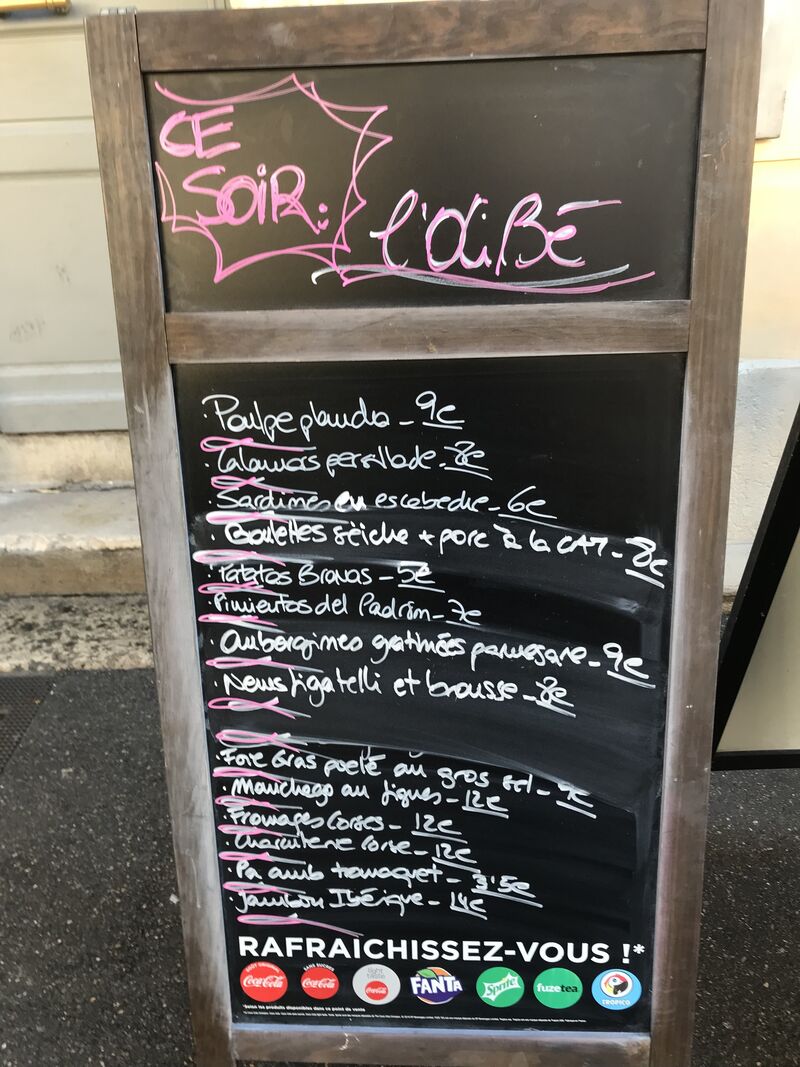 CE
SOIR:
l'OliBé
· Poulpe plancha - 9€
· Calamars persillade - 8€
· Sardines en escabeche - 6€
· Boulettes sèiche + porc à la CAT - 8€
· Patatas Bravas - 5€
· Pimientos del Padrón - 7€
· Aubergines gratinées parmesane - 9€
· News figatelli et brousse - 8€
· Foie Gras poelé au gros sel - 9€
· Manchego au figues - 12€
· Fromages Corses - 12€
· Charcuterie Corse - 12€
· Pa amb tomaquet - 3'5€
· Jambon Ibérique - 14€
RAFRAICHISSEZ-VOUS !*
GOÛT ORIGINAL Coca-Cola SANS SUCRES Coca-Cola light taste Coca-Cola FANTA Sprite fuzetea TROPICO
*Selon les produits disponibles dans ce point de vente